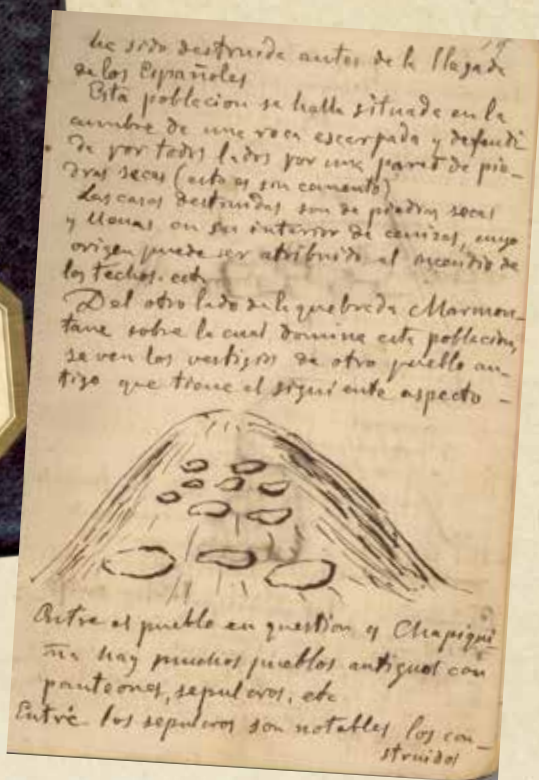 ha sido destruida antes de la llegada
de los Españoles
Esta poblacion se halla situada en la
cumbre de una roca escarpada y defendi
da por todos lados por una pared de pie–
dras secas (esto es sin cemento)
Las casas destruidas son de piedras secas
y llenas en su interior de cenizas, cuyo
origen puede ser atribuido al incendio de
los techos.
Del otro lado de la quebrada Marmon–
tane sobre la cual domina esta poblacion,
se ven los vestigios de otro pueblo an–
tigo que tiene el siguiente aspecto –
Entre el pueblo en question y Chapiqui
ña hay muchos pueblos antiguos con
panteones, sepulcros, etc
Entre los sepulcros son notables los con–
struidos